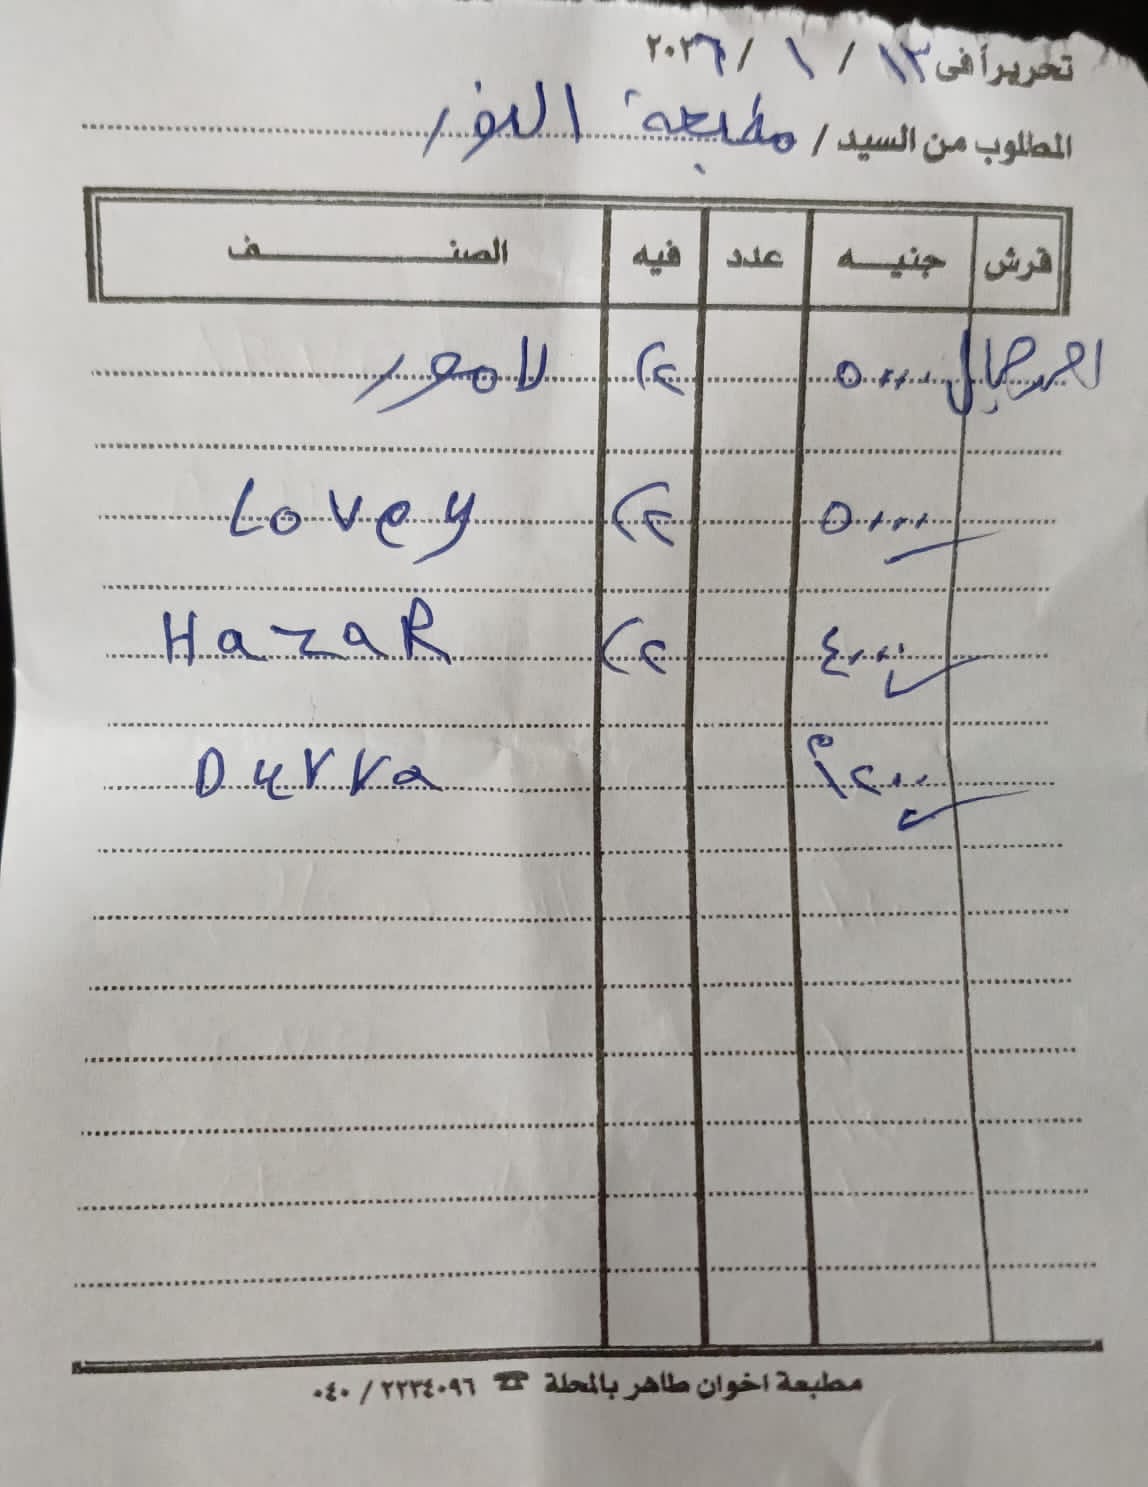 تحريراً فى ١٣ / ١ / ٢٠٢٦
المطلوب من السيد / مطبعة النور
قرش جنيه عدد فيه الصنف
٥٠٠٠ ٢٢ لامور
٥٠٠٠ ٢٢ Lovey
٤٠٠٠ ٢٢ HazaR
Durra
مطبعة اخوان طاهر بالمحلة ☎ ٢٢٣٤٠٩٦ / ٠٤٠